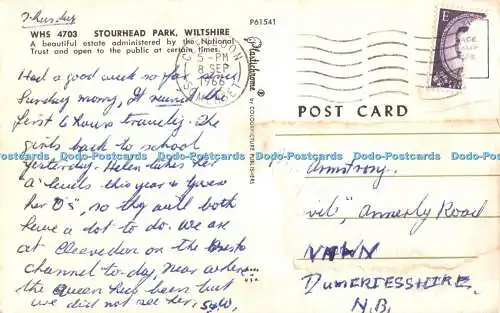 Thursday
WHS 4703 STOURHEAD PARK, WILTSHIRE
A beautiful estate administered by the National
Trust and open to the public at certain times.
Had a good week so far since
Sunday morng, It rained the
first 6 hours travellg. The
girls back to school
yesterday. Helen takes her
"A" levels this year &
her "O's", so they will both
have a lot to do. We are
at Clevedon on the Bristol
channel to-day, near where
the Queen has been but
we did not see her.
P61541
Plastichrome
®
by COLOURPICTURE PUBLISHERS
U.S.A.
CLEVEDON
5-PM
8 SEP
1966
SOMERSET
E
PLACE
STAMP
HERE
POST CARD
Armstrong
Annerly Road
ANNAN
DUMFRIESSHIRE
N.B.
Dodo-Postcards Dodo-Postcards Dodo-Postcards Dodo-Postcards Dodo-Postcards